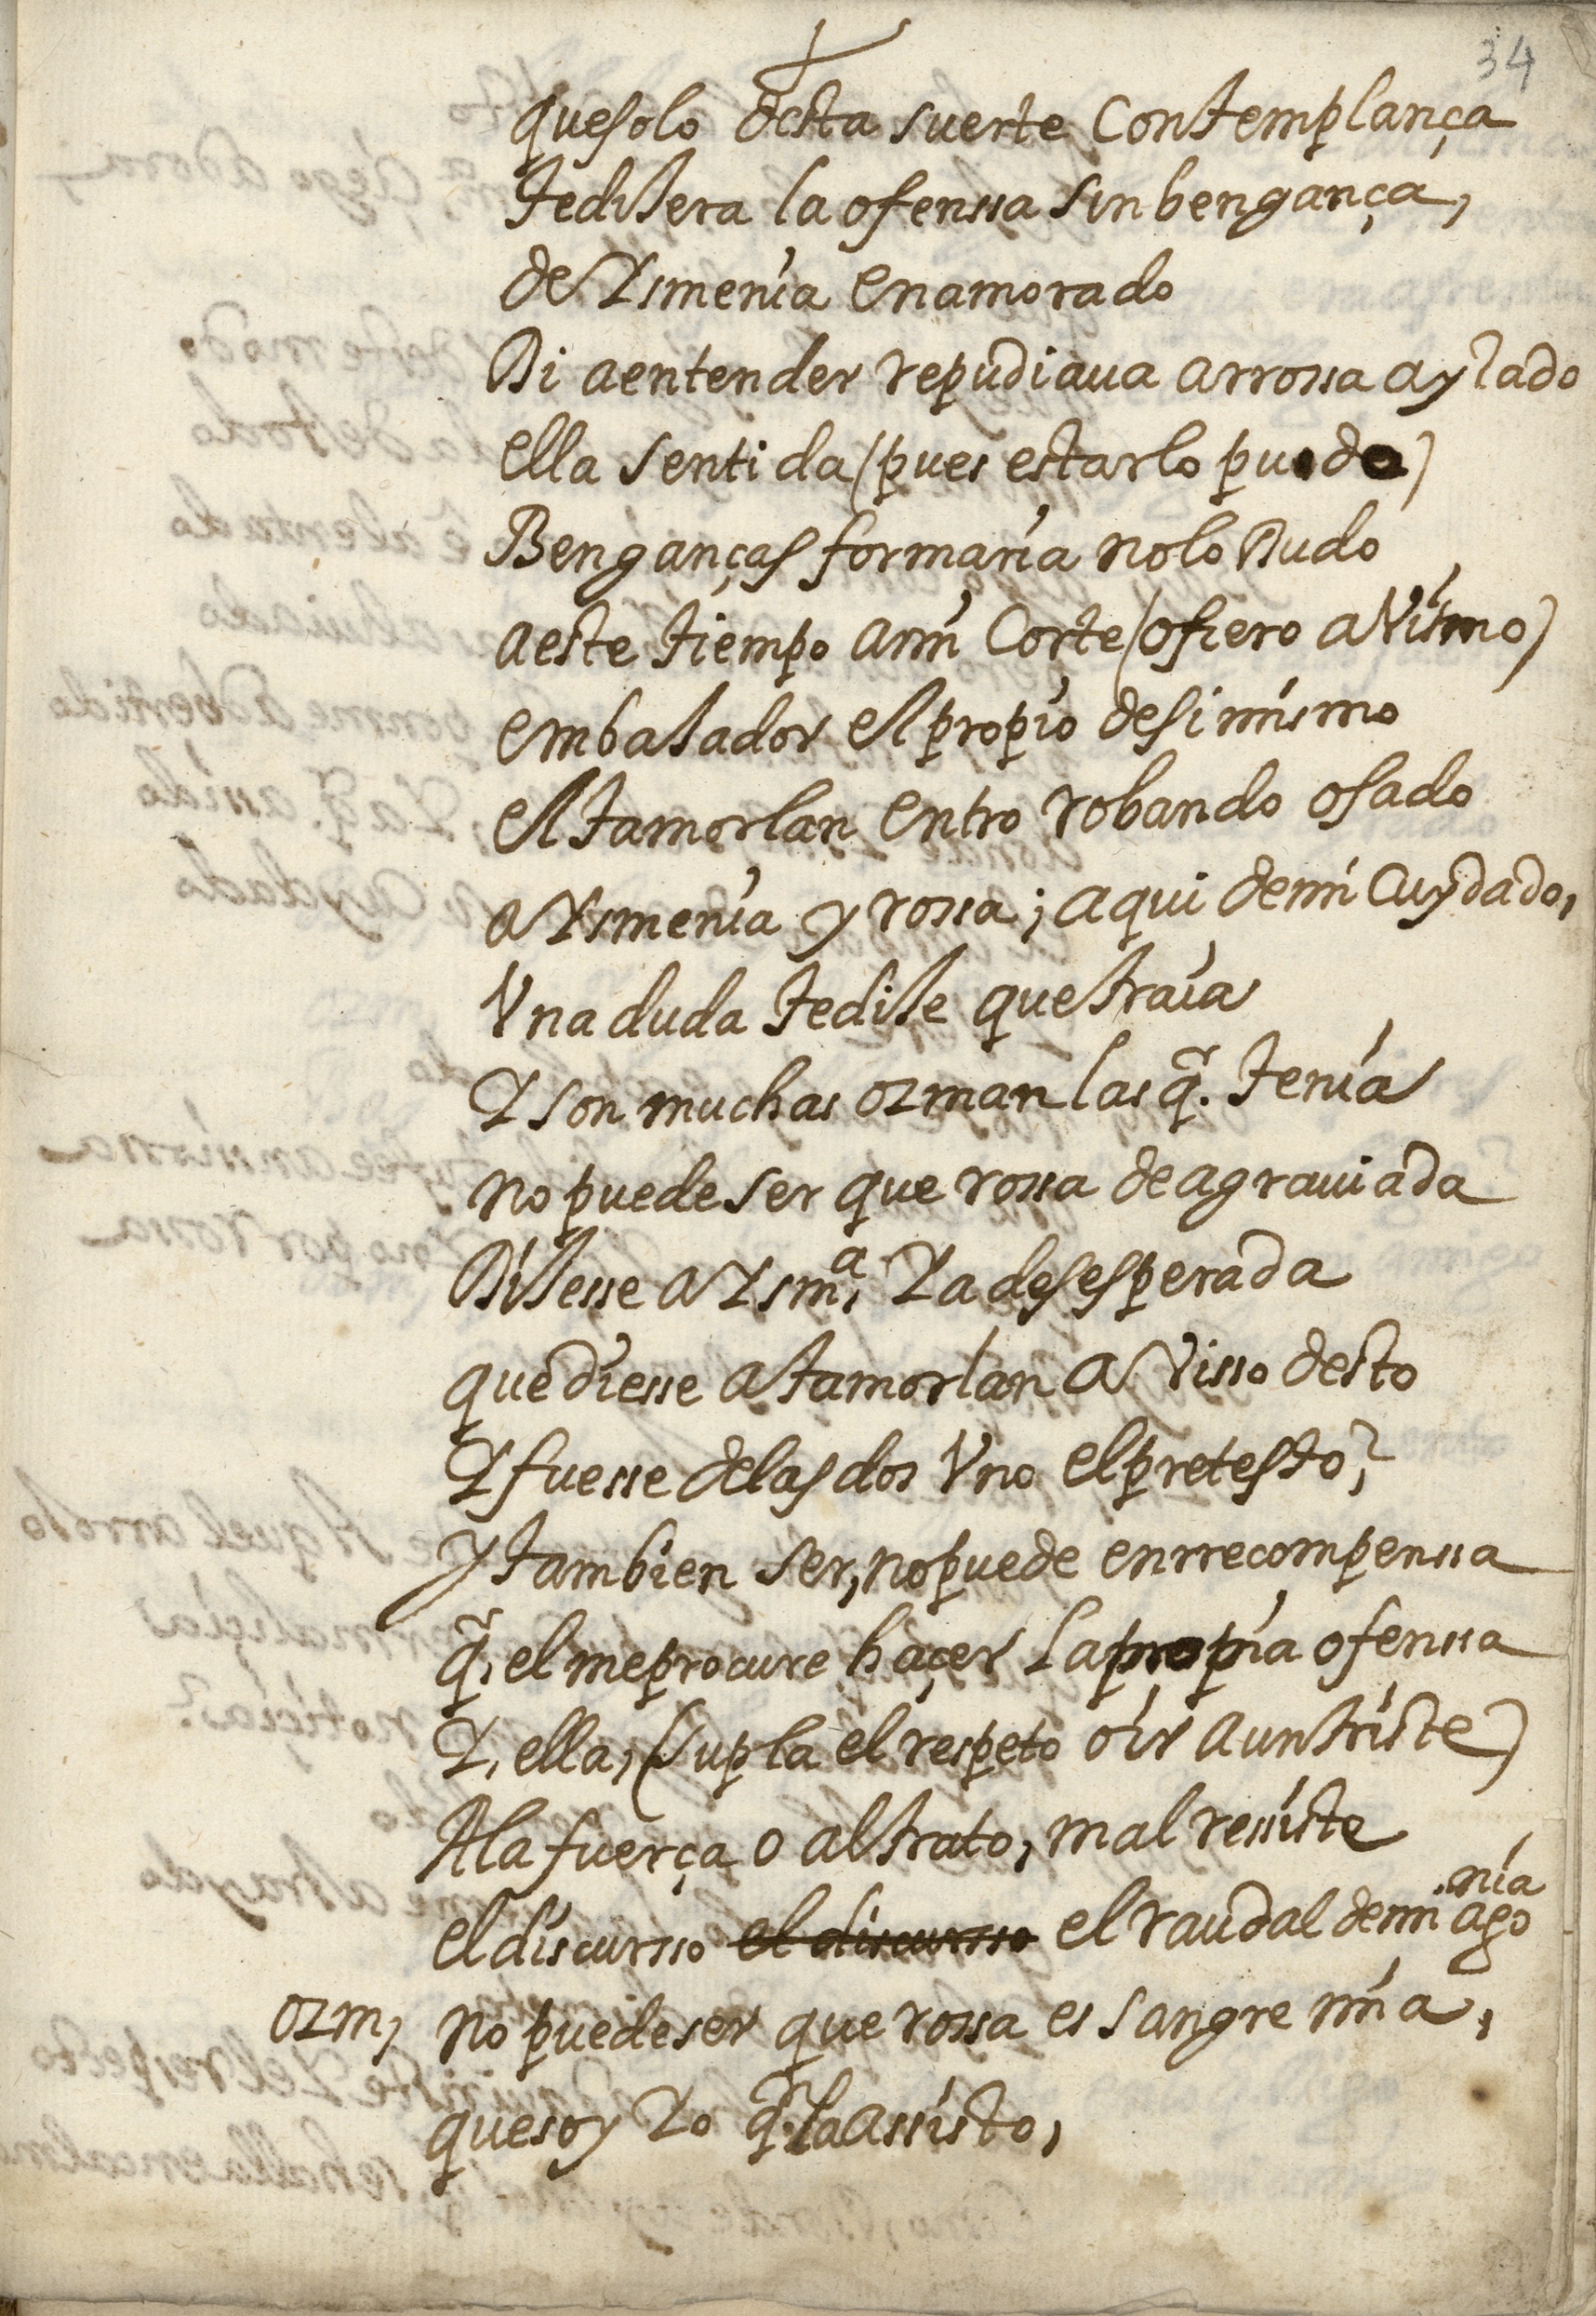 34
quesolo desta suerte Contemplança
tedixera la ofenssa sinbengança,
de Ysmenia enamorado
Di aentender repudiaua arrossa ayrado
ella sentida (pues estarlo pudo)
Bengançass formaria nolo Dudo
aeste tiempo ami Corte (ofiero avismo)
embaxador el propio desi mismo
el tamorlan entro robando osado
a Ysmenia y rossa; aqui demi Cuydado,
Vna duda tedixe que traia
Y son muchas ozman las q̃. tenia
no puede ser que rossa de agrauiada
Dixesse a Ysmª, Ya desesperada
que diesse a tamorlan avisso desto
Y fuesse delas dos Vno el pretesto?,
y tambien ser, no puede enrrecompenssa
q̃, el meprocure haçer la propia ofenssa
Y, ella, (supla el respeto oir aun triste)
Ala fuerça o al trato, mal ressiste
el discursso el discursso el raudal demi ago
nia
ozm, no puede ser que rossa es sangre mia,
que soy Yo q̃. la assisto,